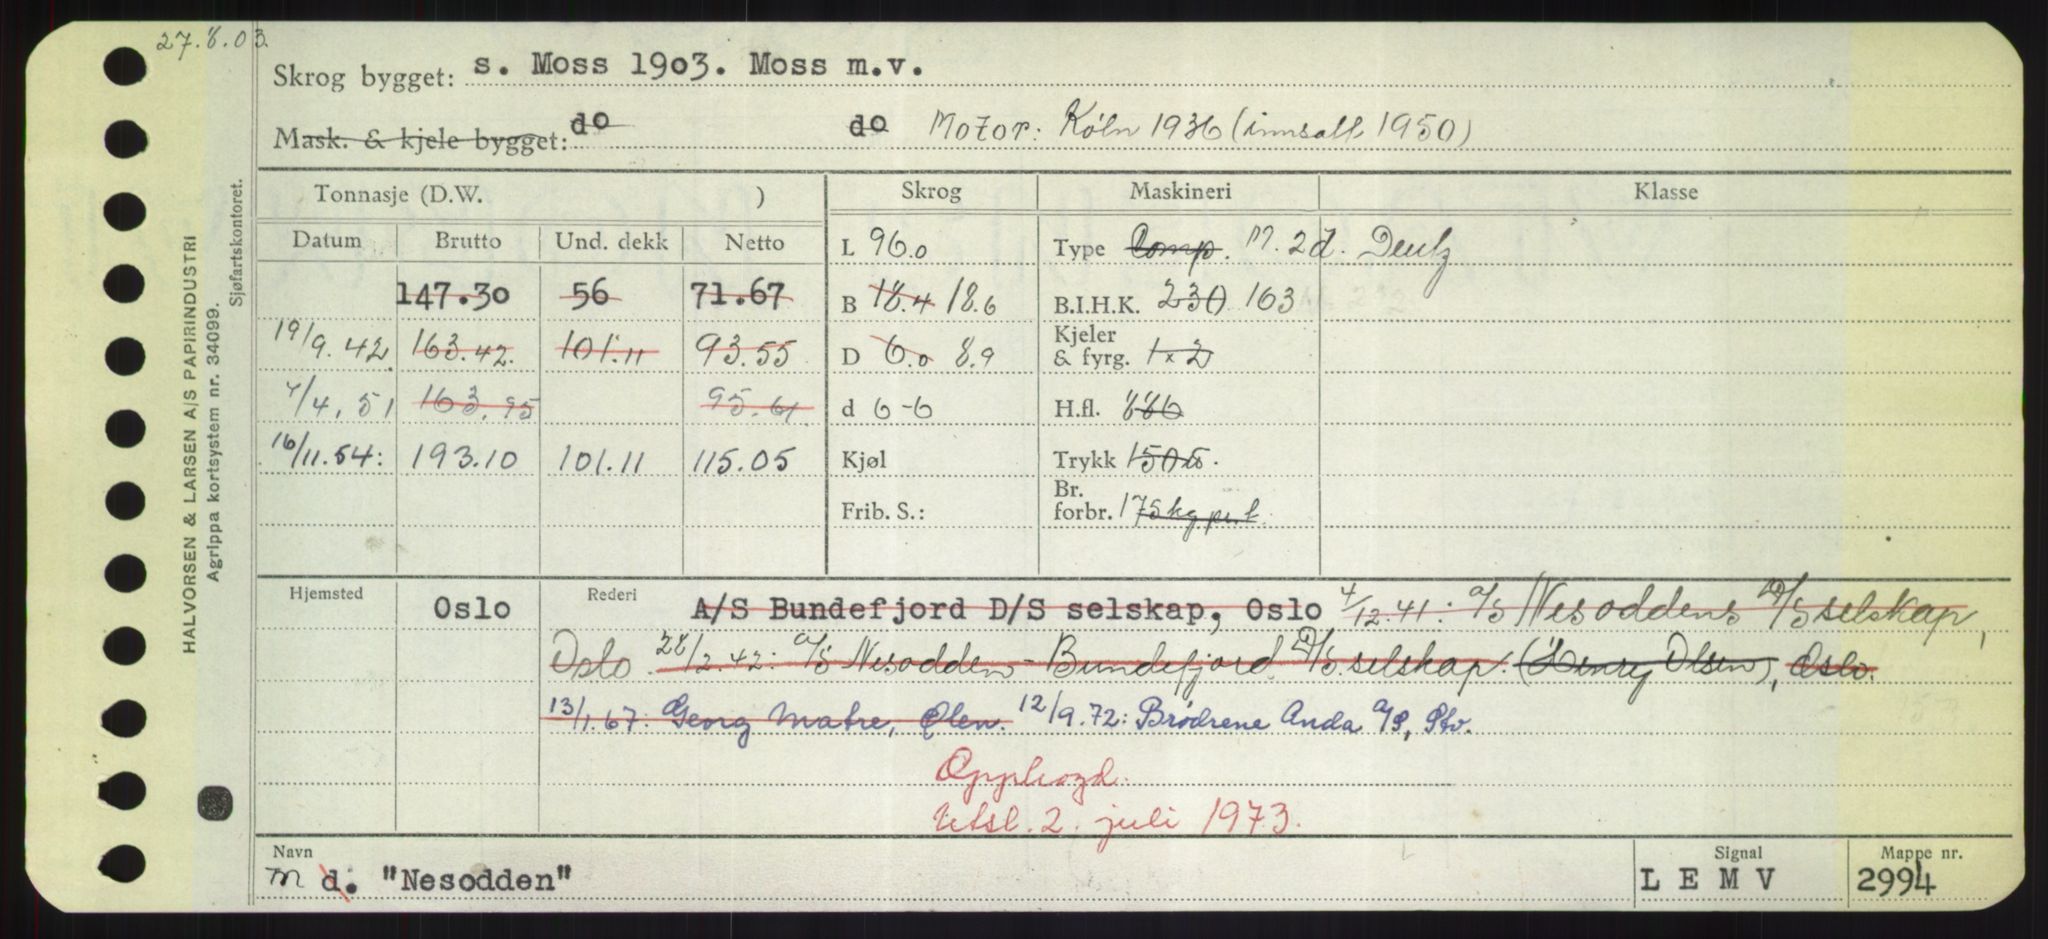 27.8.03.
Skrog bygget: s. Moss 1903. Moss m.v.
Mask. & kjele bygget: do do Motor: Köln 1936 (innsatt 1950)
Tonnasje (D.W. ) Skrog Maskineri Klasse
Datum Brutto Und. dekk Netto
L 96.0 Type Comp. M. 2d. Deutz
147.30 56 71.67 B 18.4 18.6 B.I.H.K. 230 163
19/9.42 163.42 101.11 93.55 D 6.0 8.9 Kjeler & fyrg. 1x2
4/4.51 163.95 95.61 d 6-6 H.fl. 886
16/11.54: 193.10 101.11 115.05 Kjøl Trykk 150
Frib. S.: Br. forbr. 175 kg pr. t.
Hjemsted Oslo Rederi A/S Bundefjord D/S selskap, Oslo 4/12.41: A/S Nesoddens D/S selskap,
Oslo. 28/2.42: A/S Nesodden-Bundefjord D/S selskap. (Henry Olsen), Oslo.
13/1.67: Georg Matre, Ølen. 12/9.72: Brødrene Anda A/S, Stv.
Opphogd.
Utsl. 2. juli 1973.
Navn Signal Mappe nr.
m d. "Nesodden" LEMV 2994
HALVORSEN & LARSEN A/S PAPIRINDUSTRI
Agrippa kortsystem nr. 34099.
Sjøfartskontoret.